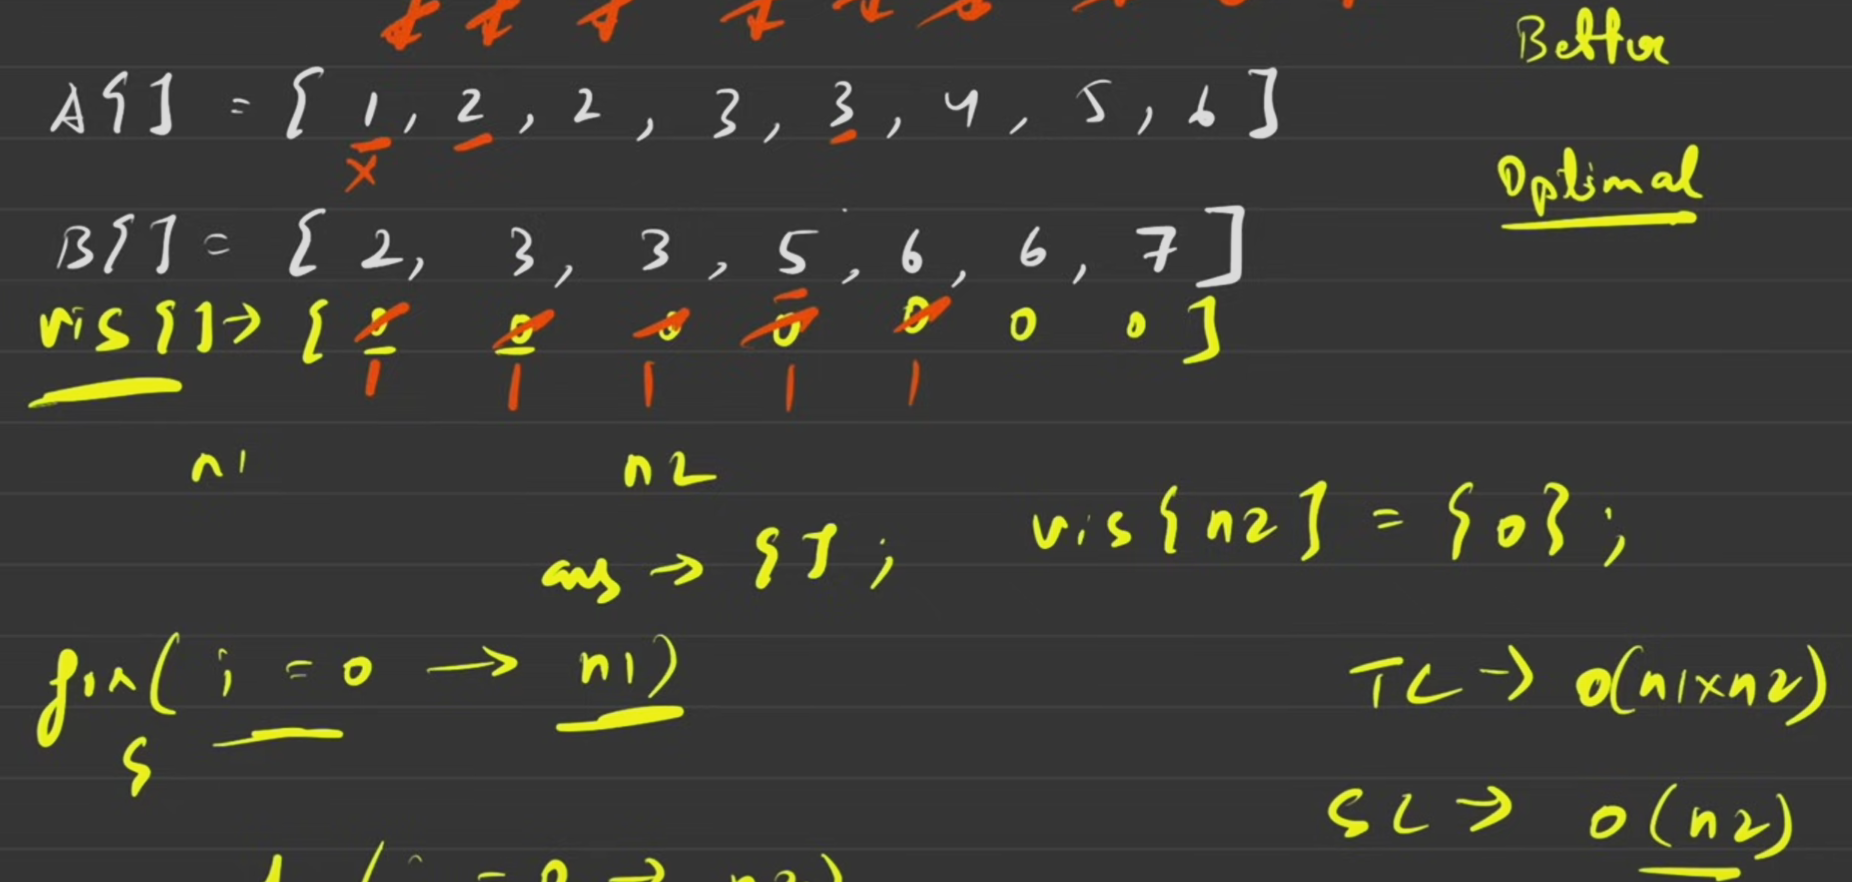 Better
A[] = [ 1, 2, 2, 3, 3, 4, 5, 6 ]
x
Optimal
B[] = [ 2, 3, 3, 5, 6, 6, 7 ]
vis[] → [ 0 0 0 0 0 0 0 ]
1 1 1 1 1
n1 n2
ans → []; vis[n2] = {0};
for( i = 0 → n1)
{
TC → O(n1xn2)
SC → O(n2)